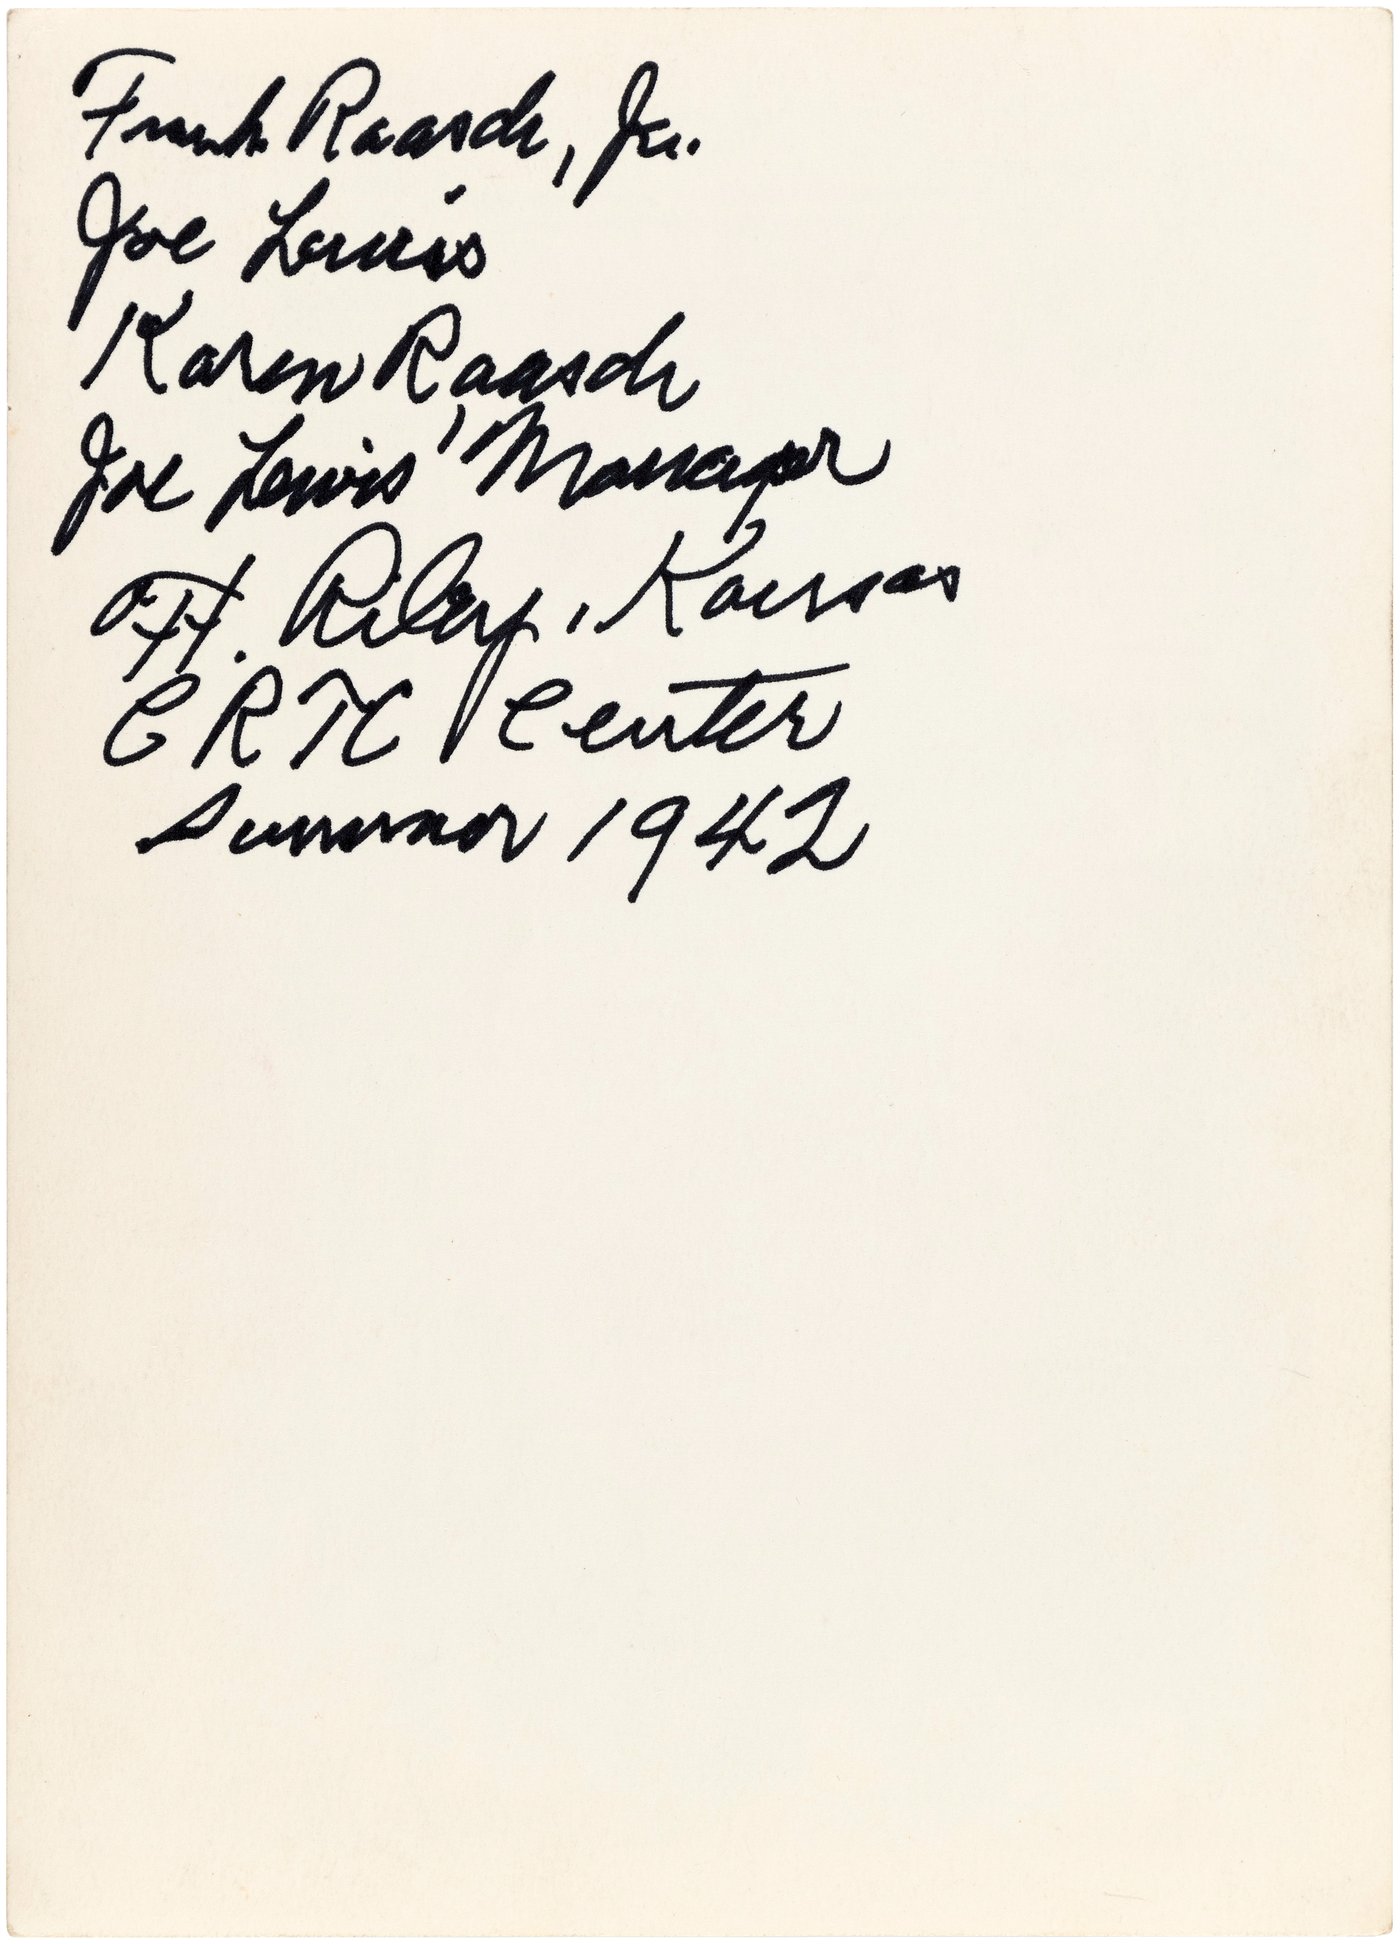 Frank Raasch, Jr.
Joe Lewis
Karen Raasch
Joe Lewis' Manager
Ft. Riley, Kansas
CRTC Center
Summer 1942